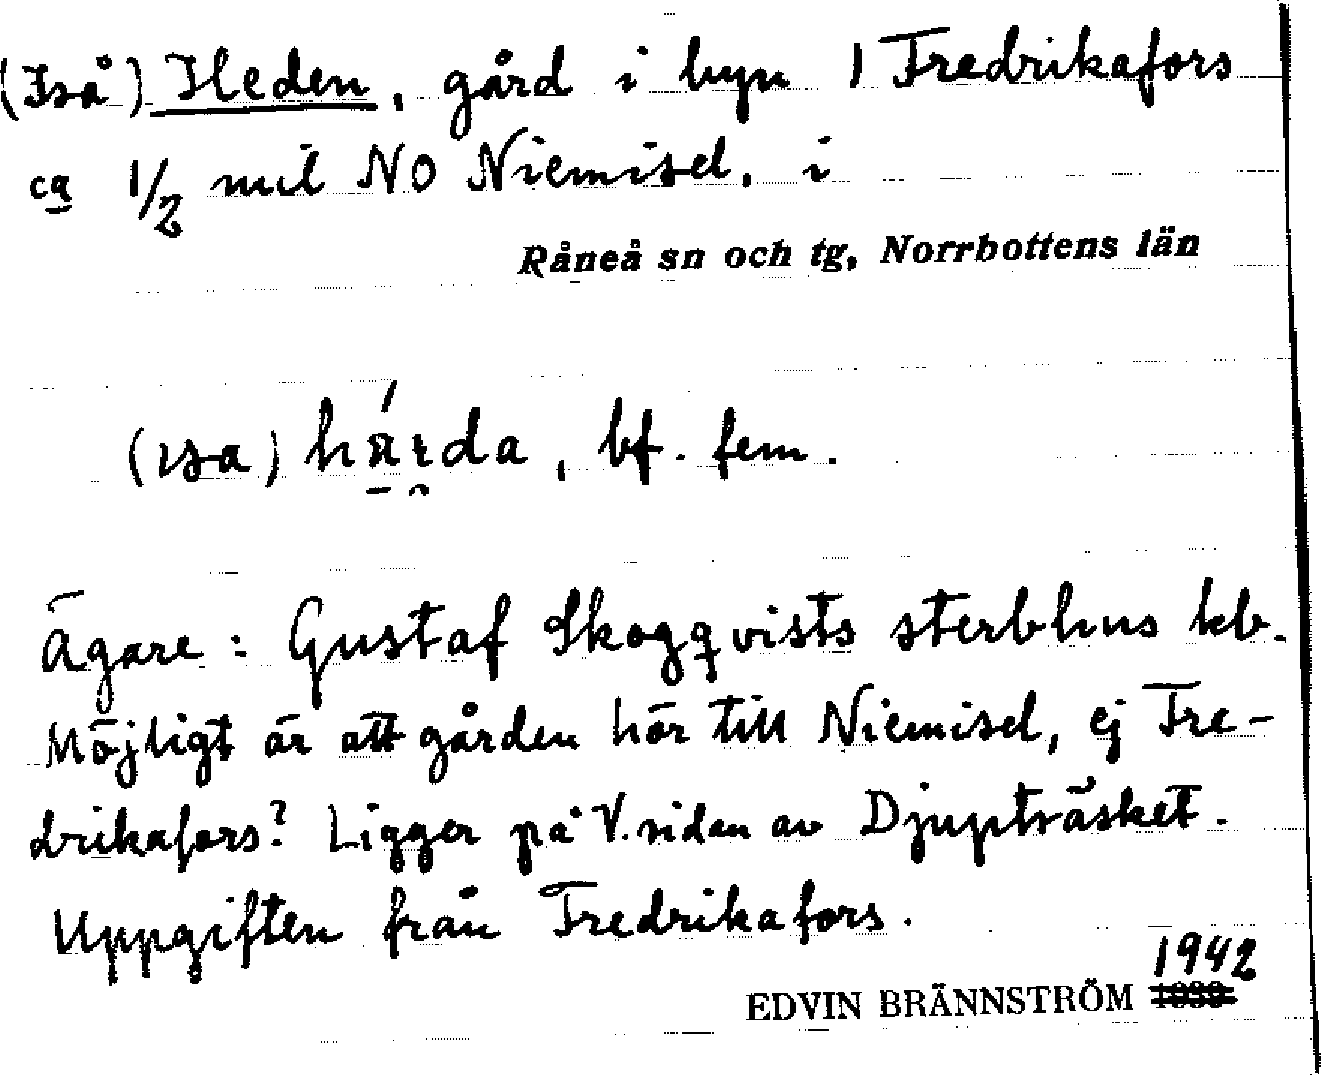 (Iså) Heden, gård i byn 1 Fredrikafors
ca 1/2 mil NO Niemisel, i
Råneå sn och tg, Norrbottens län
(ısa) hárda, bf. fem.
Ägare: Gustaf Skogqvists sterbhus kb.
Möjligt är att gården hör till Niemisel, ej Fre-
drikafors? Ligger på V. sidan av Djupträsket.
Uppgiften från Fredrikafors.
1942
EDVIN BRÄNNSTRÖM 1939